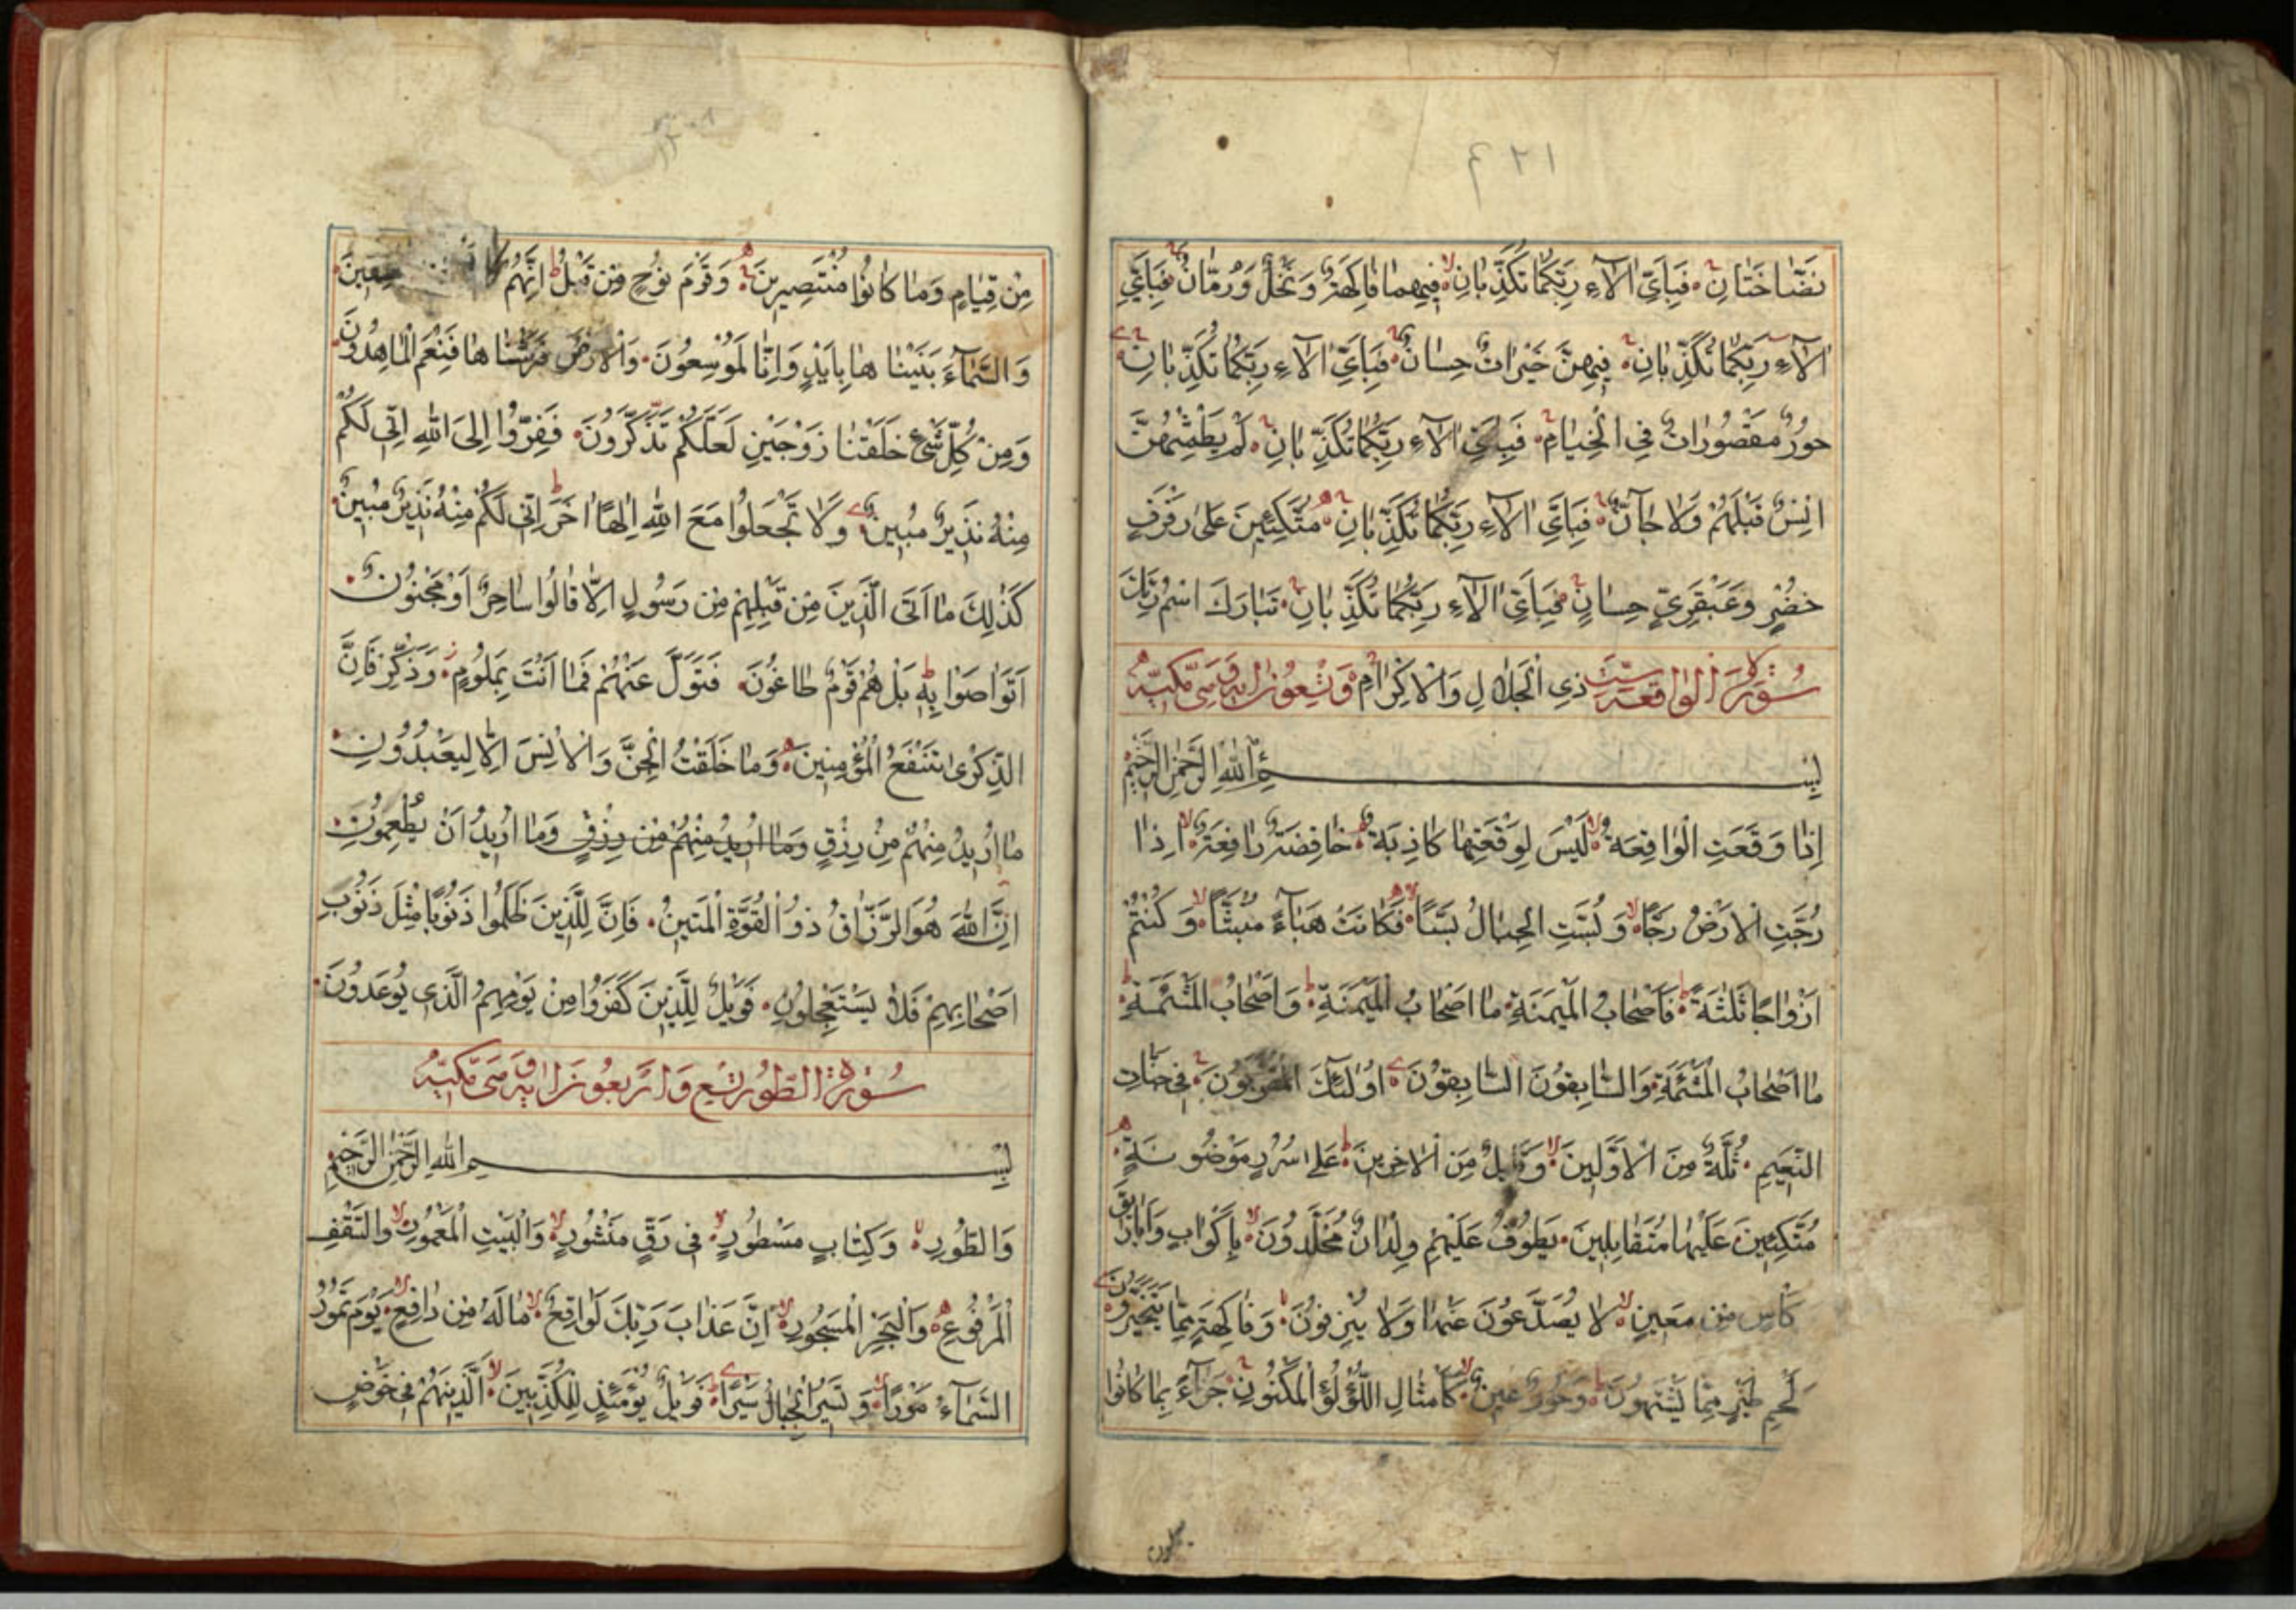 ٤٢١
نَضَّاخَتَانِ فَبِاَيِّ اٰلآءِ رَبِّكُمَا تُكَذِّبَانِ فِيهِمَا فَاكِهَةٌ وَنَخْلٌ وَرُمَّانٌ فَبِاَيِّ
اٰلآءِ رَبِّكُمَا تُكَذِّبَانِ فِيهِنَّ خَيْرَاتٌ حِسَانٌ فَبِاَيِّ اٰلآءِ رَبِّكُمَا تُكَذِّبَانِ
حُورٌ مَقْصُورَاتٌ فِي الْخِيَامِ فَبِاَيِّ اٰلآءِ رَبِّكُمَا تُكَذِّبَانِ لَمْ يَطْمِثْهُنَّ
اِنْسٌ قَبْلَهُمْ وَلَا جَآنٌّ فَبِاَيِّ اٰلآءِ رَبِّكُمَا تُكَذِّبَانِ مُتَّكِئِينَ عَلَى رَفْرَفٍ
خُضْرٍ وَعَبْقَرِيٍّ حِسَانٍ فَبِاَيِّ اٰلآءِ رَبِّكُمَا تُكَذِّبَانِ تَبَارَكَ اسْمُ رَبِّكَ
سُورَةُ الْوَاقِعَةِ سِتّ ذِي الْجَلَالِ وَالْاِكْرَامِ وَتِسْعُونَ اٰيَة وَهِيَ مَكِّيَّة
بِسْمِ اللهِ الرَّحْمٰنِ الرَّحِيمِ
اِذَا وَقَعَتِ الْوَاقِعَةُ لَيْسَ لِوَقْعَتِهَا كَاذِبَةٌ خَافِضَةٌ رَافِعَةٌ اِذَا
رُجَّتِ الْاَرْضُ رَجًّا وَبُسَّتِ الْجِبَالُ بَسًّا فَكَانَتْ هَبَآءً مُنْبَثًّا وَكُنْتُمْ
اَزْوَاجًا ثَلٰثَةً فَاَصْحَابُ الْمَيْمَنَةِ مَا اَصْحَابُ الْمَيْمَنَةِ وَاَصْحَابُ الْمَشْئَمَةِ
مَا اَصْحَابُ الْمَشْئَمَةِ وَالسَّابِقُونَ السَّابِقُونَ اُولٰئِكَ الْمُقَرَّبُونَ فِي جَنَّاتِ
النَّعِيمِ ثُلَّةٌ مِنَ الْاَوَّلِينَ وَقَلِيلٌ مِنَ الْاٰخِرِينَ عَلَى سُرُرٍ مَوْضُونَةٍ
مُتَّكِئِينَ عَلَيْهَا مُتَقَابِلِينَ يَطُوفُ عَلَيْهِمْ وِلْدَانٌ مُخَلَّدُونَ بِاَكْوَابٍ وَاَبَارِيقَ
كَاْسٍ مِنْ مَعِينٍ لَا يُصَدَّعُونَ عَنْهَا وَلَا يُنْزِفُونَ وَفَاكِهَةٍ مِمَّا يَتَخَيَّرُونَ
لَحْمِ طَيْرٍ مِمَّا يَشْتَهُونَ وَحُورٌ عِينٌ كَاَمْثَالِ اللُّؤْلُؤِ الْمَكْنُونِ جَزَآءً بِمَا كَانُوا
يعملون
مِنْ قِيَامٍ وَمَا كَانُوا مُنْتَصِرِينَ وَقَوْمَ نُوحٍ مِنْ قَبْلُ اِنَّهُمْ كَا
وَالسَّمَآءَ بَنَيْنَاهَا بِاَيْدٍ وَاِنَّا لَمُوسِعُونَ وَالْاَرْضَ فَرَشْنَاهَا فَنِعْمَ الْمَاهِدُونَ
وَمِنْ كُلِّ شَيْءٍ خَلَقْنَا زَوْجَيْنِ لَعَلَّكُمْ تَذَكَّرُونَ فَفِرُّوا اِلَى اللهِ اِنِّي لَكُمْ
مِنْهُ نَذِيرٌ مُبِينٌ وَلَا تَجْعَلُوا مَعَ اللهِ اِلٰهًا اٰخَرَ اِنِّي لَكُمْ مِنْهُ نَذِيرٌ مُبِينٌ
كَذٰلِكَ مَا اَتَى الَّذِينَ مِنْ قَبْلِهِمْ مِنْ رَسُولٍ اِلَّا قَالُوا سَاحِرٌ اَوْ مَجْنُونٌ
اَتَوَاصَوْا بِهِ بَلْ هُمْ قَوْمٌ طَاغُونَ فَتَوَلَّ عَنْهُمْ فَمَا اَنْتَ بِمَلُومٍ وَذَكِّرْ فَاِنَّ
الذِّكْرٰى تَنْفَعُ الْمُؤْمِنِينَ وَمَا خَلَقْتُ الْجِنَّ وَالْاِنْسَ اِلَّا لِيَعْبُدُونِ
مَا اُرِيدُ مِنْهُمْ مِنْ رِزْقٍ وَمَا اُرِيدُ مِنْهُمْ مِنْ رِزْقٍ وَمَا اُرِيدُ اَنْ يُطْعِمُونِ
اِنَّ اللهَ هُوَ الرَّزَّاقُ ذُو الْقُوَّةِ الْمَتِينُ فَاِنَّ لِلَّذِينَ ظَلَمُوا ذَنُوبًا مِثْلَ ذَنُوبِ
اَصْحَابِهِمْ فَلَا يَسْتَعْجِلُونِ فَوَيْلٌ لِلَّذِينَ كَفَرُوا مِنْ يَوْمِهِمُ الَّذِي يُوعَدُونَ
سُورَةُ الطُّورِ تِسْع وَاَرْبَعُونَ اٰيَة وَهِيَ مَكِّيَّة
بِسْمِ اللهِ الرَّحْمٰنِ الرَّحِيمِ
وَالطُّورِ وَكِتَابٍ مَسْطُورٍ فِي رَقٍّ مَنْشُورٍ وَالْبَيْتِ الْمَعْمُورِ وَالسَّقْفِ
الْمَرْفُوعِ وَالْبَحْرِ الْمَسْجُورِ اِنَّ عَذَابَ رَبِّكَ لَوَاقِعٌ مَا لَهُ مِنْ دَافِعٍ يَوْمَ تَمُورُ
السَّمَآءُ مَوْرًا وَتَسِيرُ الْجِبَالُ سَيْرًا فَوَيْلٌ يَوْمَئِذٍ لِلْمُكَذِّبِينَ الَّذِينَ هُمْ فِي خَوْضٍ